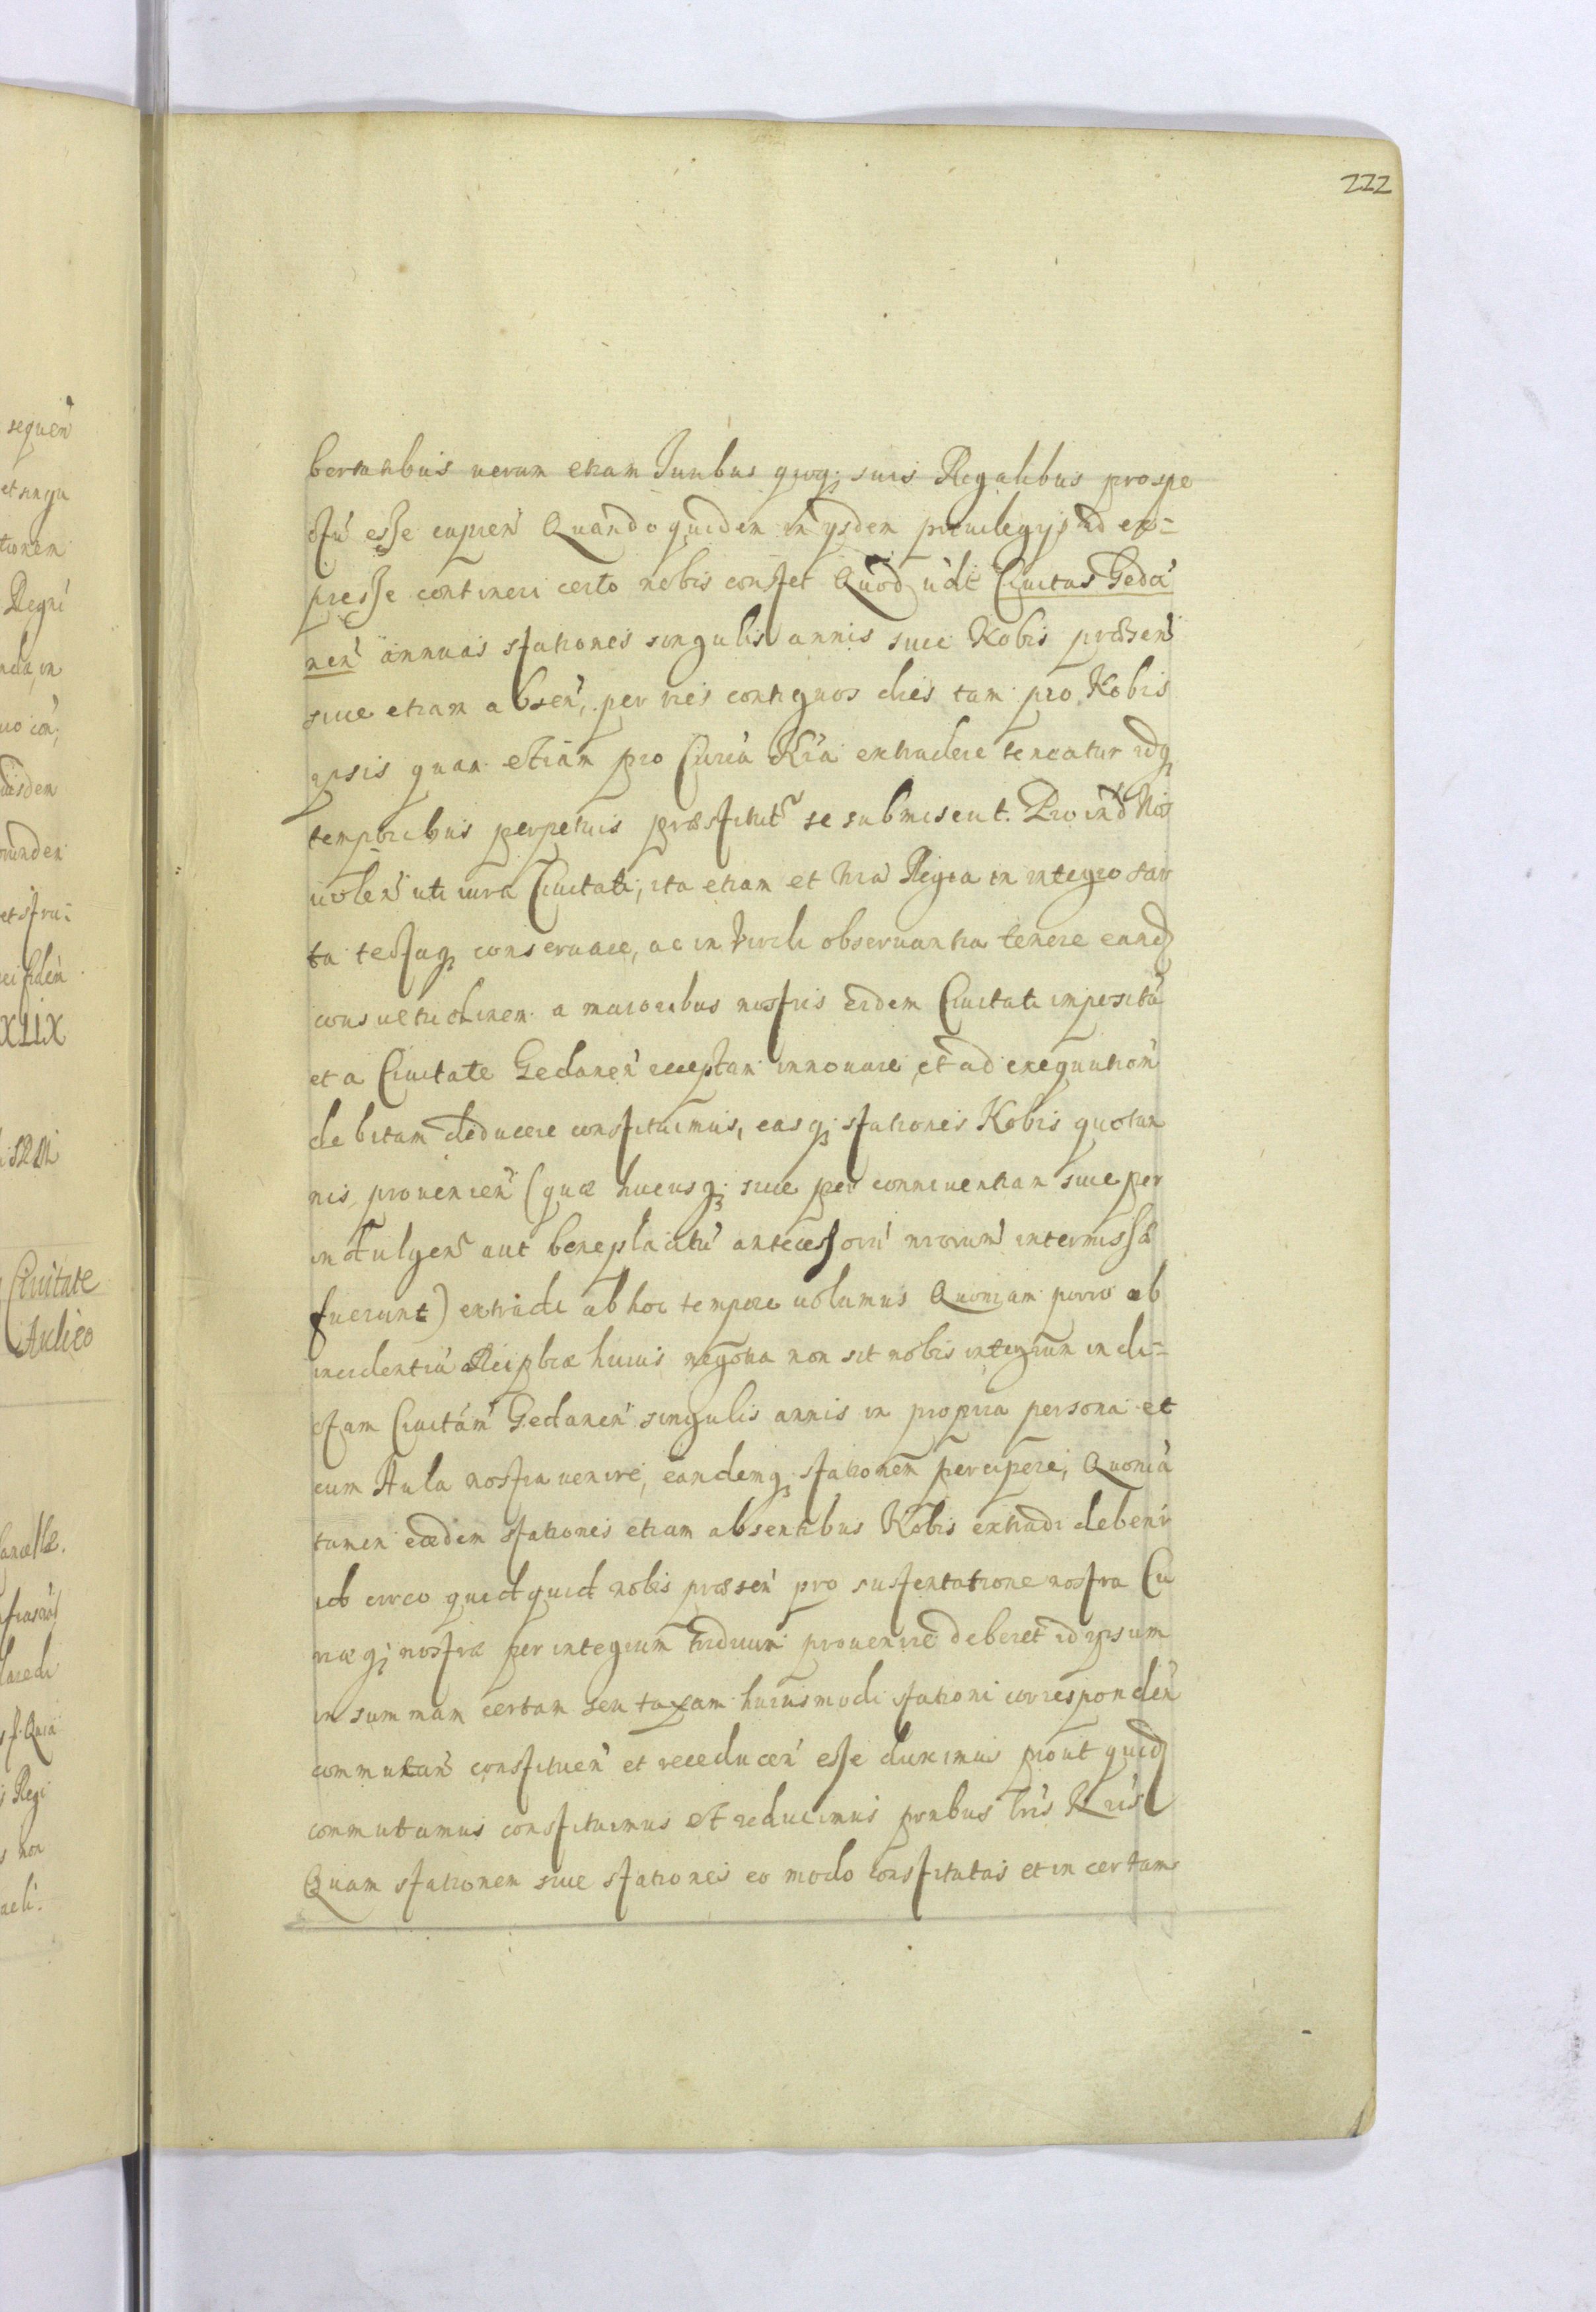 222
bertatibus uerum etiam Juribus quoq; suis Regalibus prospe
ctũ esse cupien̄ Quando quidem in ijsdem priuilegijs id ex=
presse contineri certo nobis constet Quod Ciuitas Gedā
nen̄ annuas stationes singulis annis siue Nobis præsen̄
siue etiam absen̄, per tres contiguos dies tam pro Nobis
ipsis quam etiam pro Curia Nrā extradere teneatur idq;
temporibus perpetuis se submiserit. Proind Nos
uolen̄ uti iura Ciuitati, ita etiam et nrā Regia in integro sar
ta tectaq; conseruare, ac in uirili obseruantia tenere eand
consuetudinem a maioribus nostris eidem Ciuitati impositā
et a Ciuitate Gedanen̄ receptam innouare, et ad exequution̄
debitam deducere constituimus, easq; stationes Nobis quotan
nis prouenien̄ (quæ hucusq; siue per conniuentiam siue per
indulgen̄ aut beneplacitũ antecessorũ nrorum intermissæ
fuerunt) extradi ab hoc tempore uolumus Quoniam porro ob
incidentiā Reipbcæ huius negotia non sit nobis integrum in di=
ctam Ciuitām Gedanen̄ singulis annis in propria persona et
cum Aula nostra uenire, eandemq; stationem percipere, Quoniā
tamen eædem stationes etiam absentibus Nobis extradi debent̄
id circo quidquid nobis præsen̄ pro sustentatione nostra Cu
riæq; nostræ per integrum triduum prouenire deberet id ipsum
in summam certam seu taxam huiusmodi stationi corresponden̄
commutan̄ constituen̄ et reducen̄ esse duximus prout quid
commutamus constituimus et reducimus pntibus lr̄is Nr̄is
Quam stationem siue stationes eo modo constitutas et in certam
sequen̄
et singu
tionem
Regni
XLIX
Ciuitate
Aulico
Quia
Regi
non